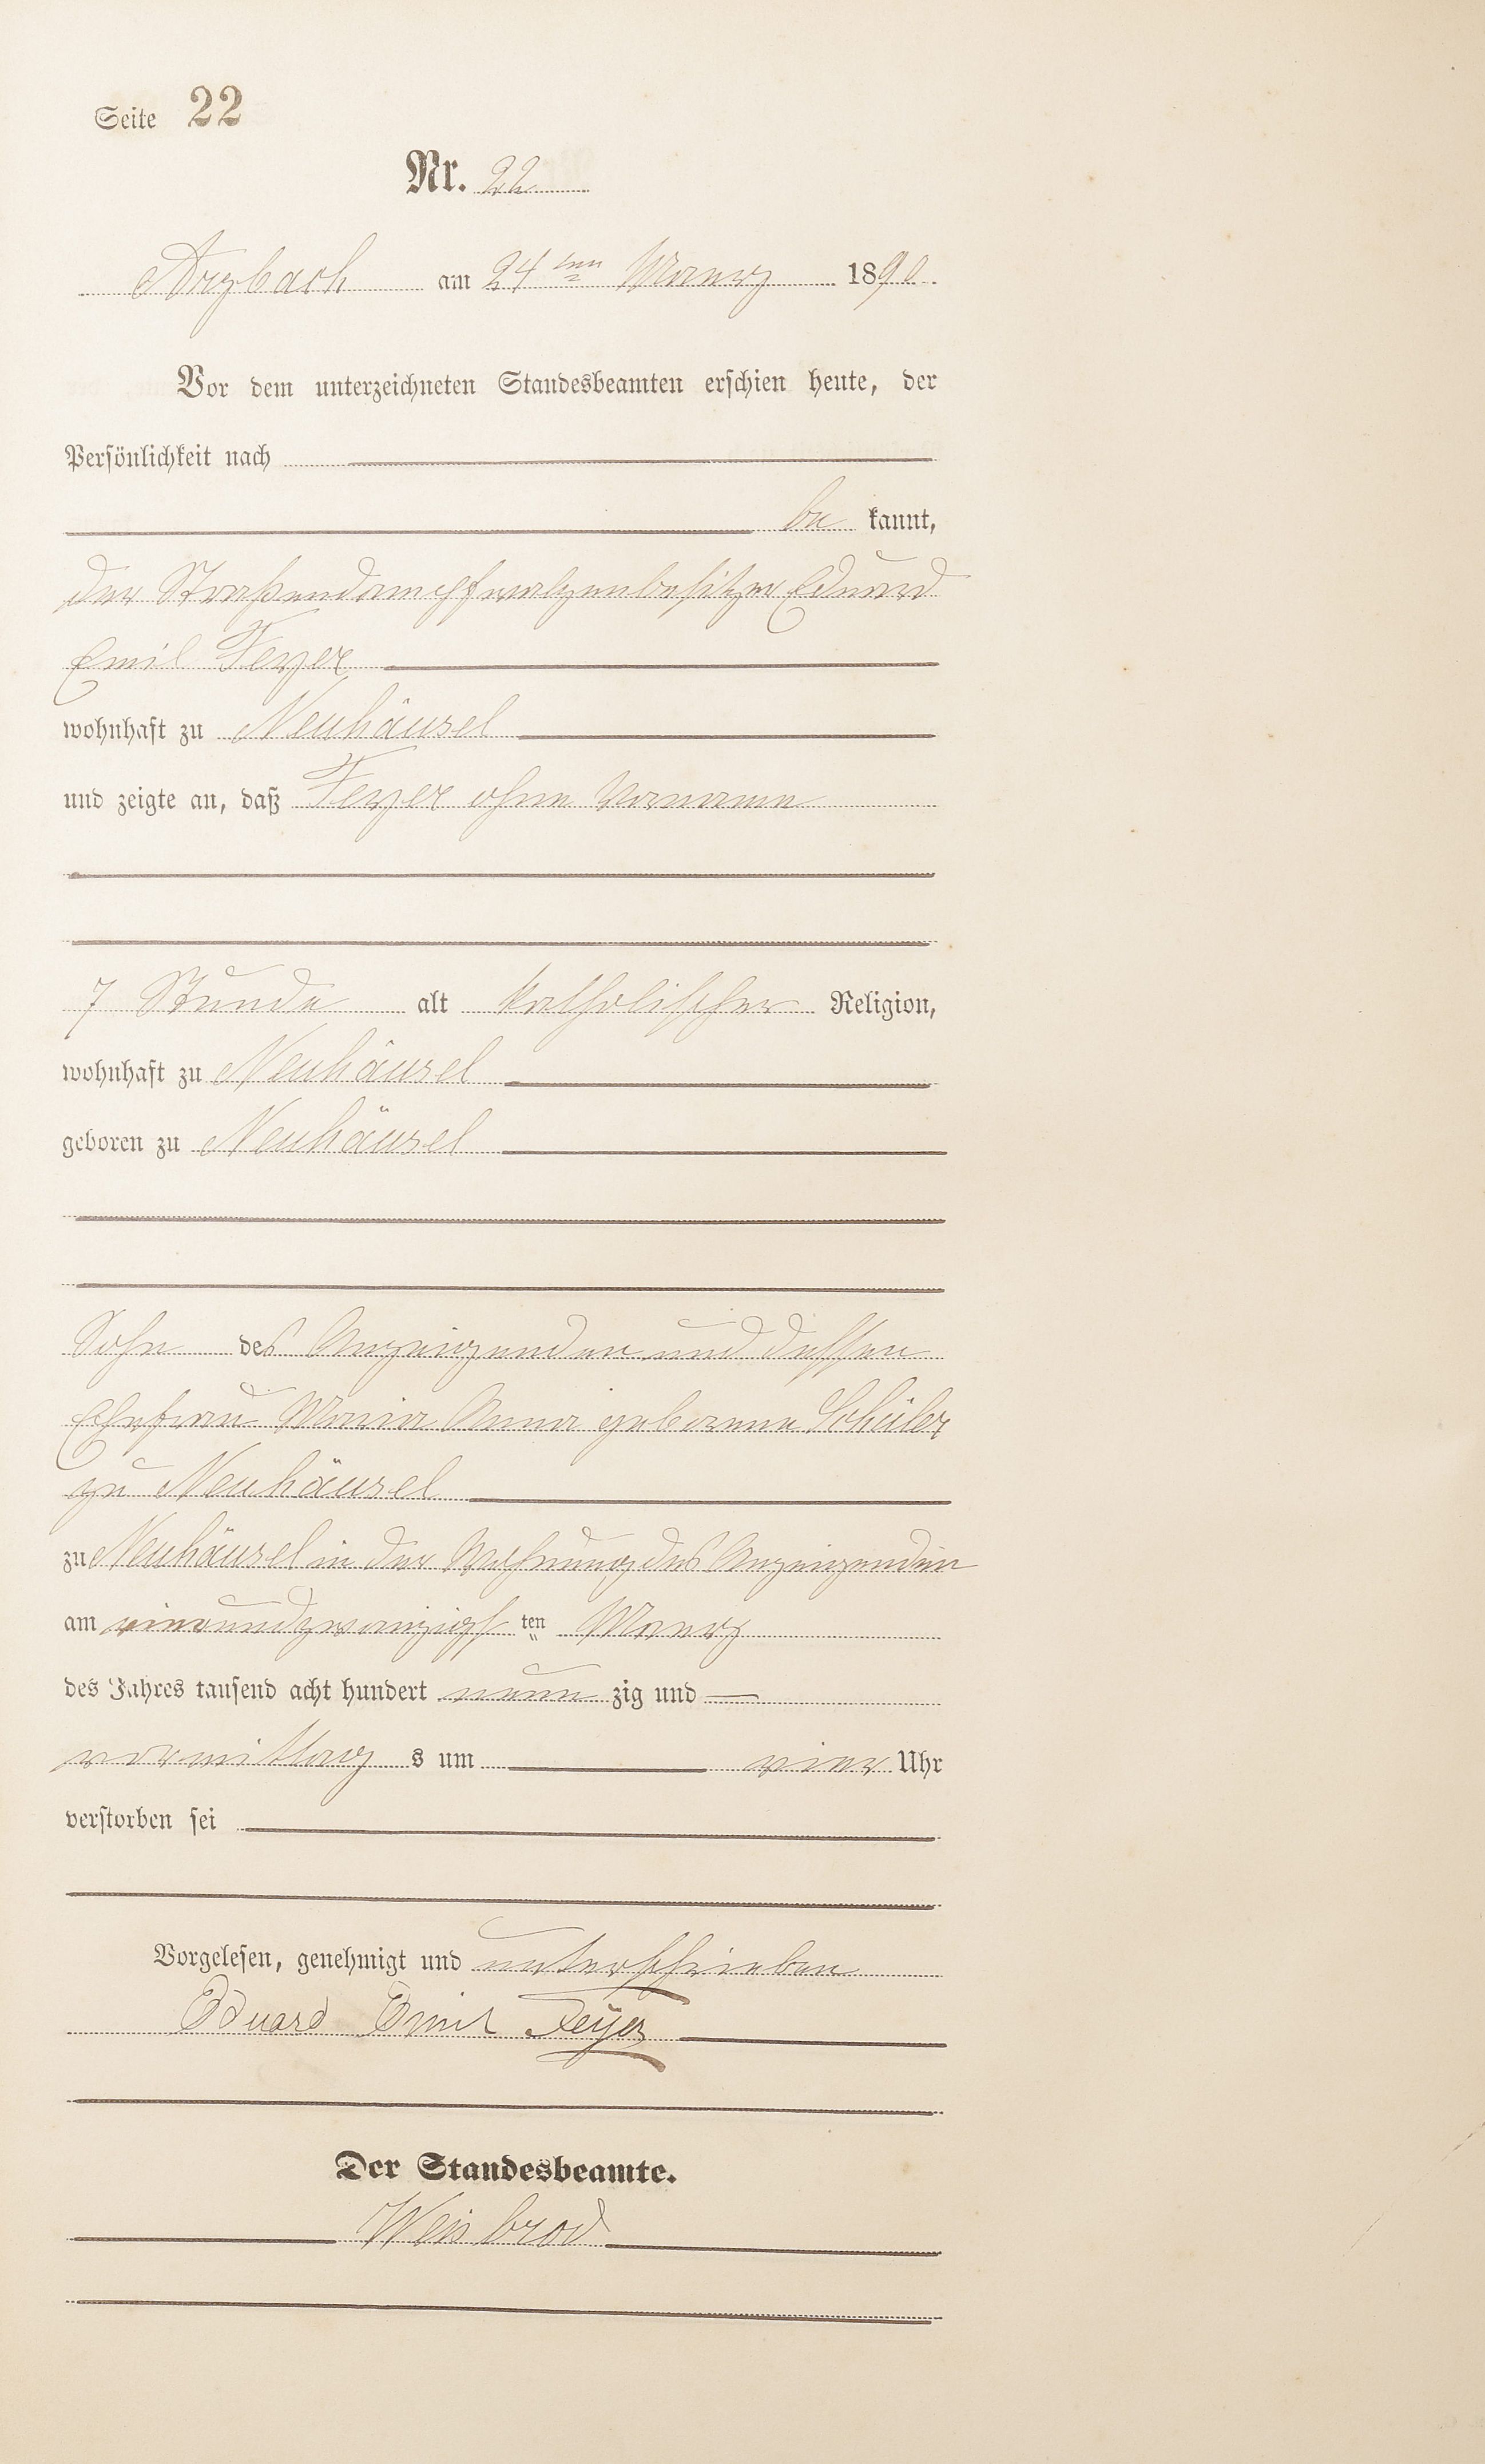 Seite 22
Nr. 22
Arzbach am 24ten Maerz 1890.
Vor dem unterzeichneten Standesbeamten erschien heute, der
Persönlichkeit nach
be kannt,
der Straßendampfwalzenbesitzer Eduard
Emil Feyer
wohnhaft zu Neuhäusel
und zeigte an, daß Feyer ohne Vorname
7 Stunde alt katholischer Religion,
wohnhaft zu Neuhäusel
geboren zu Neuhäusel
Sohn des Anzeigenden und dessen
Ehefrau Maria Anna geborene Schüler
zu Neuhäusel
zu Neuhäusel in der Wohnung des Anzeigenden
am vierundzwanzigsten Maerz
des Jahres tausend acht hundert neun zig und —
vormittag s um vier Uhr
verstorben sei
Vorgelesen, genehmigt und unterschrieben
Eduard Emil Feyer
Der Standesbeamte.
Weisbrod